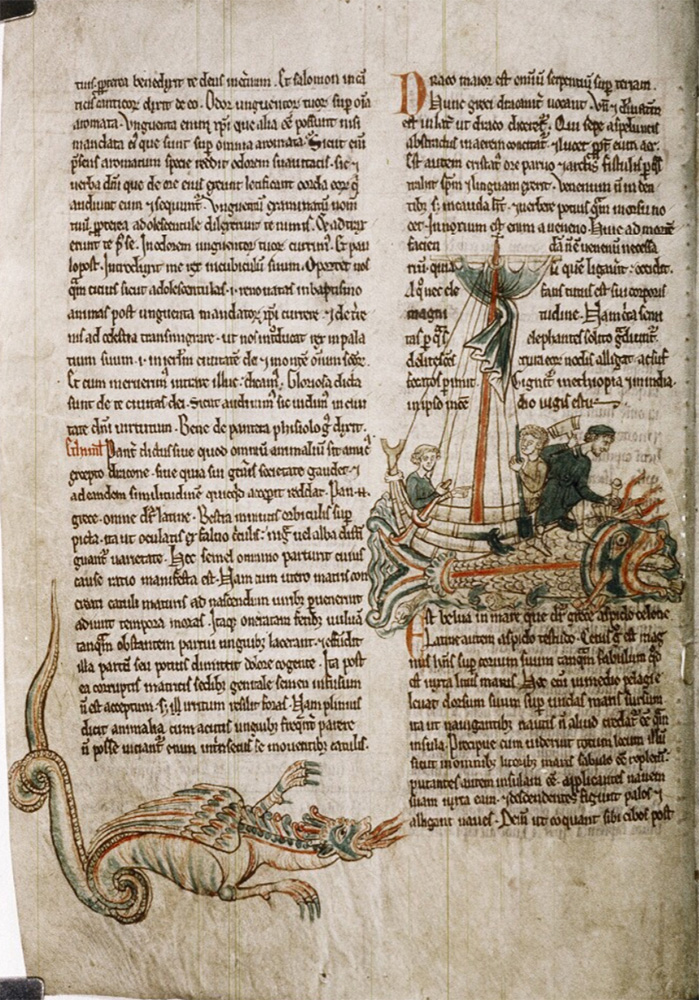 benedixit te deus inet̄num. Et salomon in cā
ticis canticoꝝ dixit de eo. Odor unguentoꝝ tuoꝝ sup oīa
aromata. Unguenta enim xp̄i que alia eē possunt nisi
mandata ei que sunt sup omnia aromata. Sicut eni
p̄sens aromatum species reddit odorem suauitatis. sic ⁊
uerba dn̄i que de ore eius exeunt letificant corda eoꝝ q̄
audiunt eum ⁊ sequunt̄. Unguentū exinanitum nom̄
tuū adolescentule dilexerunt te nimis. Et
te In odorem unguentoꝝ tuoꝝ currim̄. Et pau
lopost. Introduxit me rex in cubiculū suum. Oportet nos
q̄m citius sicut adolescentulas .i. renouatas in baptismo
animas post unguenta mandatoꝝ xp̄i currere ⁊ de t̄re
nis ad celestia transmigrare. ut nos int̄ducat rex in pala
tium suum .i. in ierl̄m ciuitatē dei ⁊ in montē omniū
Et cum meruerim̄ intrare illuc dicam̄. Gloriosa dicta
sunt de te ciuitas dei. Sicut audiuim̄ sic uidim̄ in ciui
tate dn̄i uirtutum. Bene de pantera phisioloḡ dixit.
Pant̄ dictus siue quod omniū animaliū sit amic̄
excepto dracone. siue quia sui gen̄is societate gaudet ⁊
ad eandem similitudinē quicq̄d accepit reddat. Pan
grece. omne dr̄ latine. Bestia minutis orbiculis sup
picta. ita ut oculatis ex fuluo circulis. niḡ uel alba disti
guat̄ uarietate. Hec semel omnino parturit cuius
cause ratio manifesta est. Nam cum in utero matris coa
creati catuli maturis ad nascendum uirib; 
tempora moras. Itaq; oneratam fetib; uuluā
tanq̄m obstantem partui unguib; lacerant.
illa partū seu potius dimittit dolore cogente. Ita post
ea corruptis matricis sedib; genitale semen infusum
n̄ est acceptum. s; irritum resilit foras. Nam plinius
dicit animalia cum acutis unguib; freq̄nt̄ parere
n̄ posse. uitiant̄ enim intrinsecus se mouentib; catulis.
Draco maior est omniū serpentiū sup terram.
Hunc greci draconē uocant. Vn̄ ⁊
est in lat̄ ut draco diceret̄. Qui sepe a speluncis
abstractus in aerem concitat̄. ⁊ lucet pp̄t eum aer.
Est autem cristat̄ ore paruo ⁊ artis fistulis p q̄s
trahit sp̄m ⁊ linguam exerit. Venenum n̄ in den
tib; s; in cauda h̄t. ⁊ uerbere potius q̄m morsu no
cet. Innoxium est enim a ueneno. Hunc ad mortē
facien dā n̄ eē uenenū necessa
riū. quia si quē ligauerit occidit.
A quo nec ele fans tutus est sui corporis
magni tudine. Nam circa semi
tas p q̄s elephantes solito g̃diunt̄
delitescēs crura eoꝝ nodis alligat. ac suf
focatos pimit. Gignit̄ in ethiopia ⁊ in india
in ipso incē dio iugis estus.
Est belua in mare que dr̄ grece aspido celone
Latine autem aspido testudo. Cetus g̊ est mag
nus habens sup corium suum tanq̄m sabulum q̊d
est iuxta litus maris. Hec eni in medio pelagi
leuat dorsum suum sup undas maris sursum
ita ut nauigantib; nautis n̄ aliud credat̄ eē q̄m
insula. Precipue cum uiderint totum locum illū
sicut in omnib; litorib; maris sabulo eē repletū.
putantes autem insulam eē. applicantes nauem
suam iuxta eam. ⁊ descendentes figunt palos ⁊
alligant naues. Dein̄ ut coquant sibi cibos post